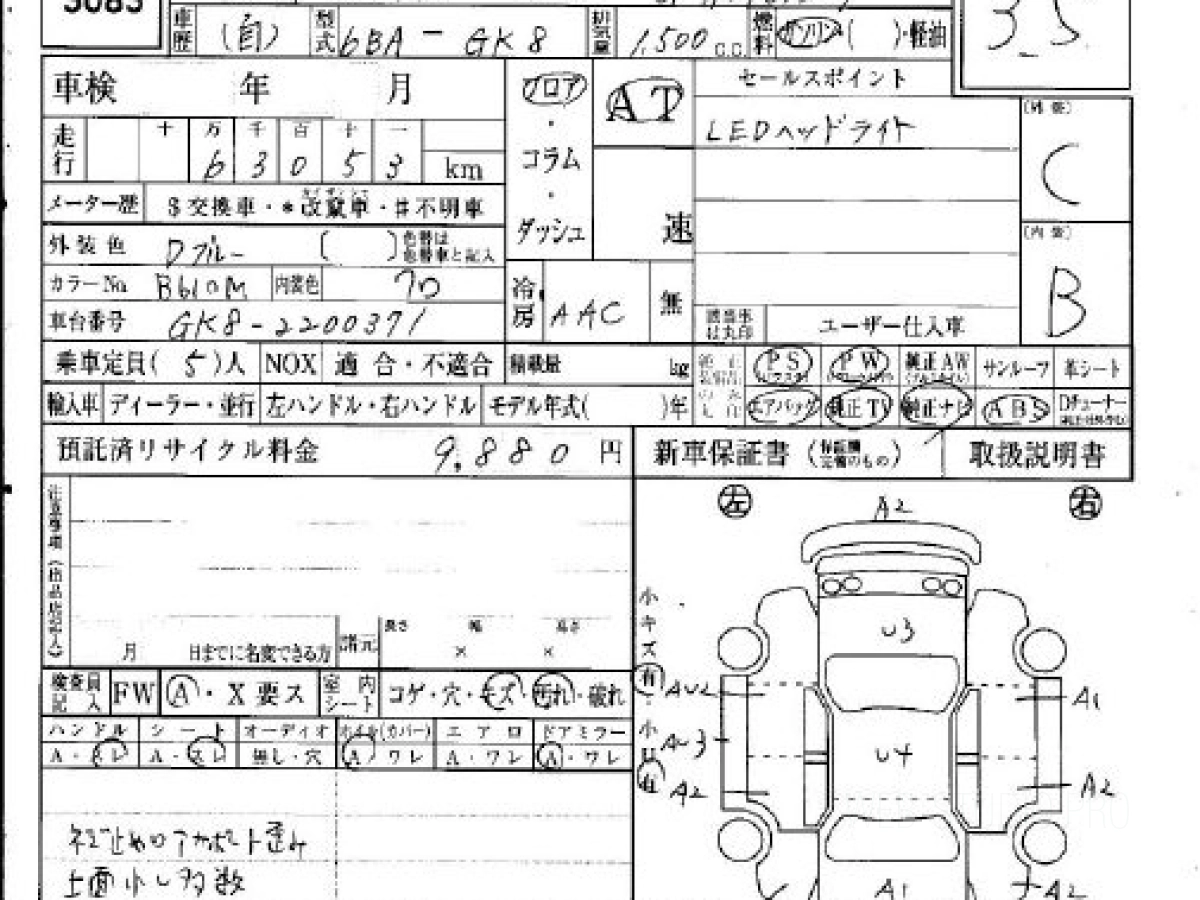 5083
車歴 (自) 型式 6BA - GK8 排気量 1,500 C.C. 燃料 ガソリン( )・軽油
3.5
車検 年 月
フロア・コラム・ダッシュ
AT
速
セールスポイント
LEDヘッドライト
(外装)
C
(内装)
B
走行 十 万 千 百 十 一
6 3 0 5 3 km
メーター歴 $交換車・*改竄車・#不明車
外装色 Dブルー ( ) 色替は色替車と記入
カラーNo. B610M 内装色 クロ
車台番号 GK8-2200371
冷房 AAC 無
該当事は丸印 ユーザー仕入車
乗車定員( 5 )人 NOX 適合・不適合 積載量 kg
PS PW 純正AW サンルーフ 革シート
輸入車 ディーラー・並行 左ハンドル・右ハンドル モデル年式( )年
エアバッグ 純正TV 純正ナビ ABS Dチューナー
預託済リサイクル料金 9,880 円
新車保証書 (保証書完備のもの) 取扱説明書
注意事項(出品店記入)
月 日までに名変できる方 諸元 長さ 幅 高さ
× ×
検査員記入 FW A・X要ス 室内シート コゲ・穴・キズ・汚れ・破れ
ハンドル シート オーディオ ホイル(カバー) エアロ ドアミラー
A・スレ A・スレ 無し・穴 A ワレ A・ワレ A・ワレ
ネジ止め
上面小レ多数
左 右
A2
小キズ有・小凹有
U3
AU2
A1
AU3
U4
A2
A2
A1
A2